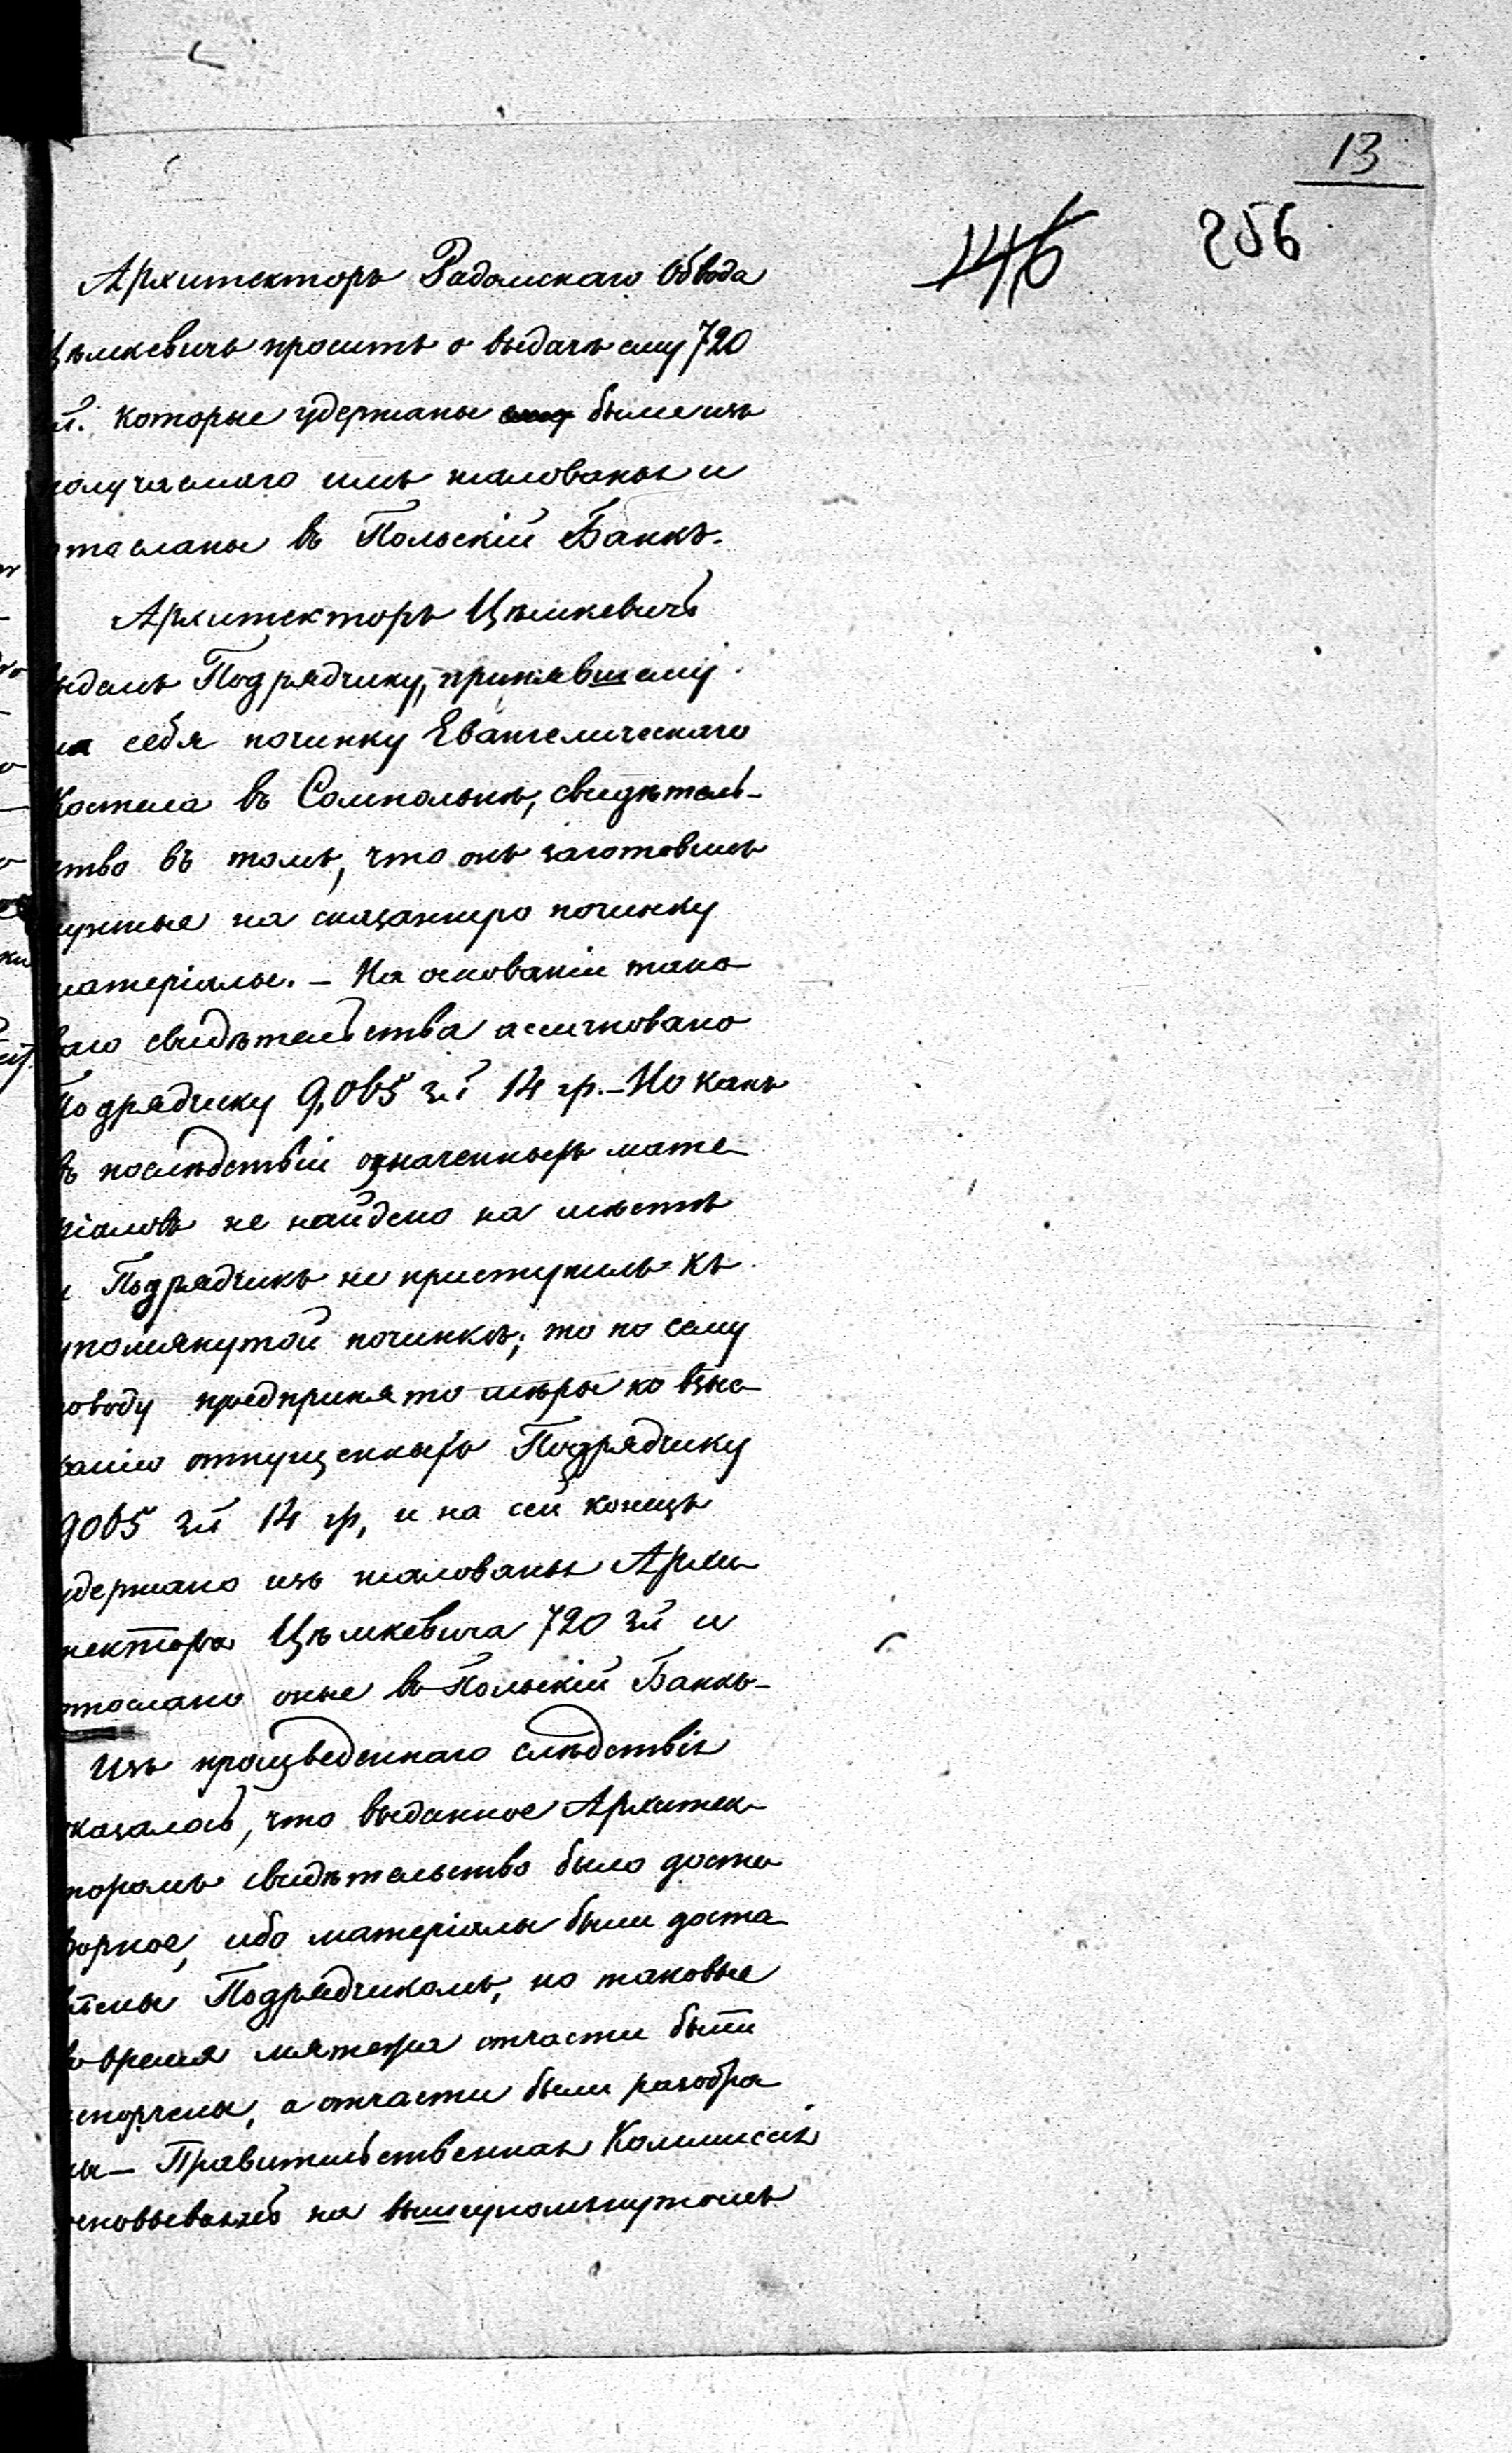 13
146 256
Архитекторъ Радомскаго Обвода
Цѣмкевичъ проситъ о выдачѣ ему 720
й. которые удержаны были изъ
олучаемаго имъ жалованья и
тосланы въ Польскій Банкъ.
Архитекторъ Цѣмкевичъ
ыдалъ Подрядчику, принявшему
на себя починку Евангелическаго
Костела въ Сомпольнѣ, свидѣтель-
ство въ томъ, что онъ заготовилъ
нужные на сказанную починку
матеріалы. – На основаніи тако
ваго свидѣтельства ассигновано
Подрядчику 9,065 зл 14 гр. – Но какъ
въ послѣдствіи означенныхъ мате
ріаловъ не найдено на мѣстѣ
и Подрядчикъ не приступилъ къ
упомянутой починкѣ; то по сему
поводу предпринято мѣры ко взыс
канію отпущенныхъ Подрядчику
9065 зл 14 гр, и на сей конецъ
удержано изъ жалованья Архи
тектора Цѣмкевича 720 зл и
отослано оные въ Польскій Банкъ –
Изъ произведеннаго слѣдствія
оказалось, что выданное Архитек-
торомъ свидѣтельство было досто
ворное, ибо матеріалы были доста
влены Подрядчикомъ, но таковые
во время мятежа отчасти были
испорчены, а отчасти были разобра
ны – Правительственная Коммисія
основываясь на вышеупомянутомъ